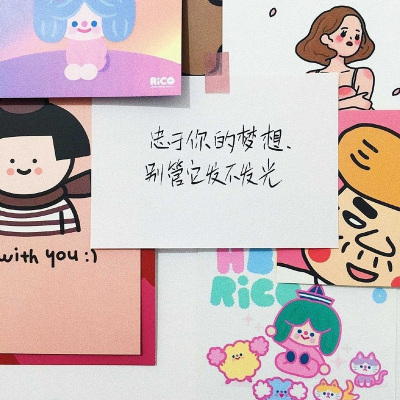 RiCO
忠于你的梦想、
别管它发不发光
with you :)
RiCO